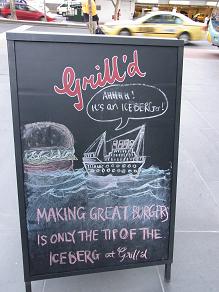 Grill'd
AHHHH!
It's an ICEBERG!
MAKING GREAT BURGERS
IS ONLY THE TIP OF THE
ICEBERG at Grill'd